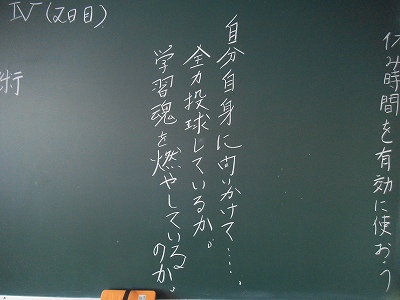 Ⅳ(2日目)
術
休み時間を有効に使おう
自分自身に向かけて….
全力投球しているか。
学習魂を燃やしている
のか。